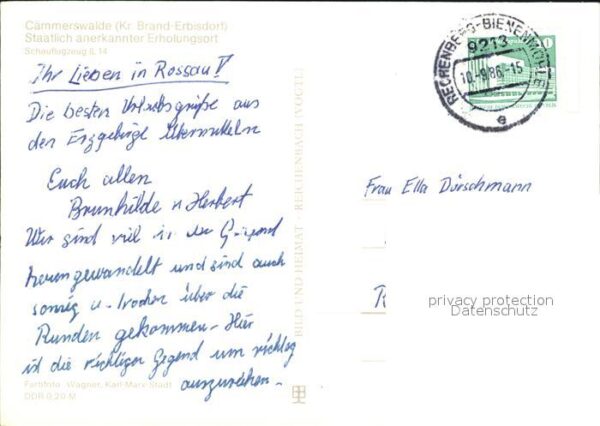 Cämmerswalde (Kr. Brand-Erbisdorf)
Staatlich anerkannter Erholungsort
Schauflugzeug IL 14
Ihr Lieben in Rossau!
Die besten Urlaubsgrüße aus
den Erzgebirge übermitteln
Euch allen
Brunhilde u Herbert
Wir sind viel in der Gegend
herumgewandelt und sind auch
sonnig u. trocken über die
Runden gekommen. Hier
ist die richtige Gegend um richtig
auszuruhen.
Farbfoto: Wagner, Karl-Marx-Stadt
DDR 0,20 M
BILD UND HEIMAT REICHENBACH (VOGTL)
RECHENBERG-BIENENMÜHLE
9213
10.-9.86-15
e
10
Frau Ella Dürschmann
privacy protection
Datenschutz